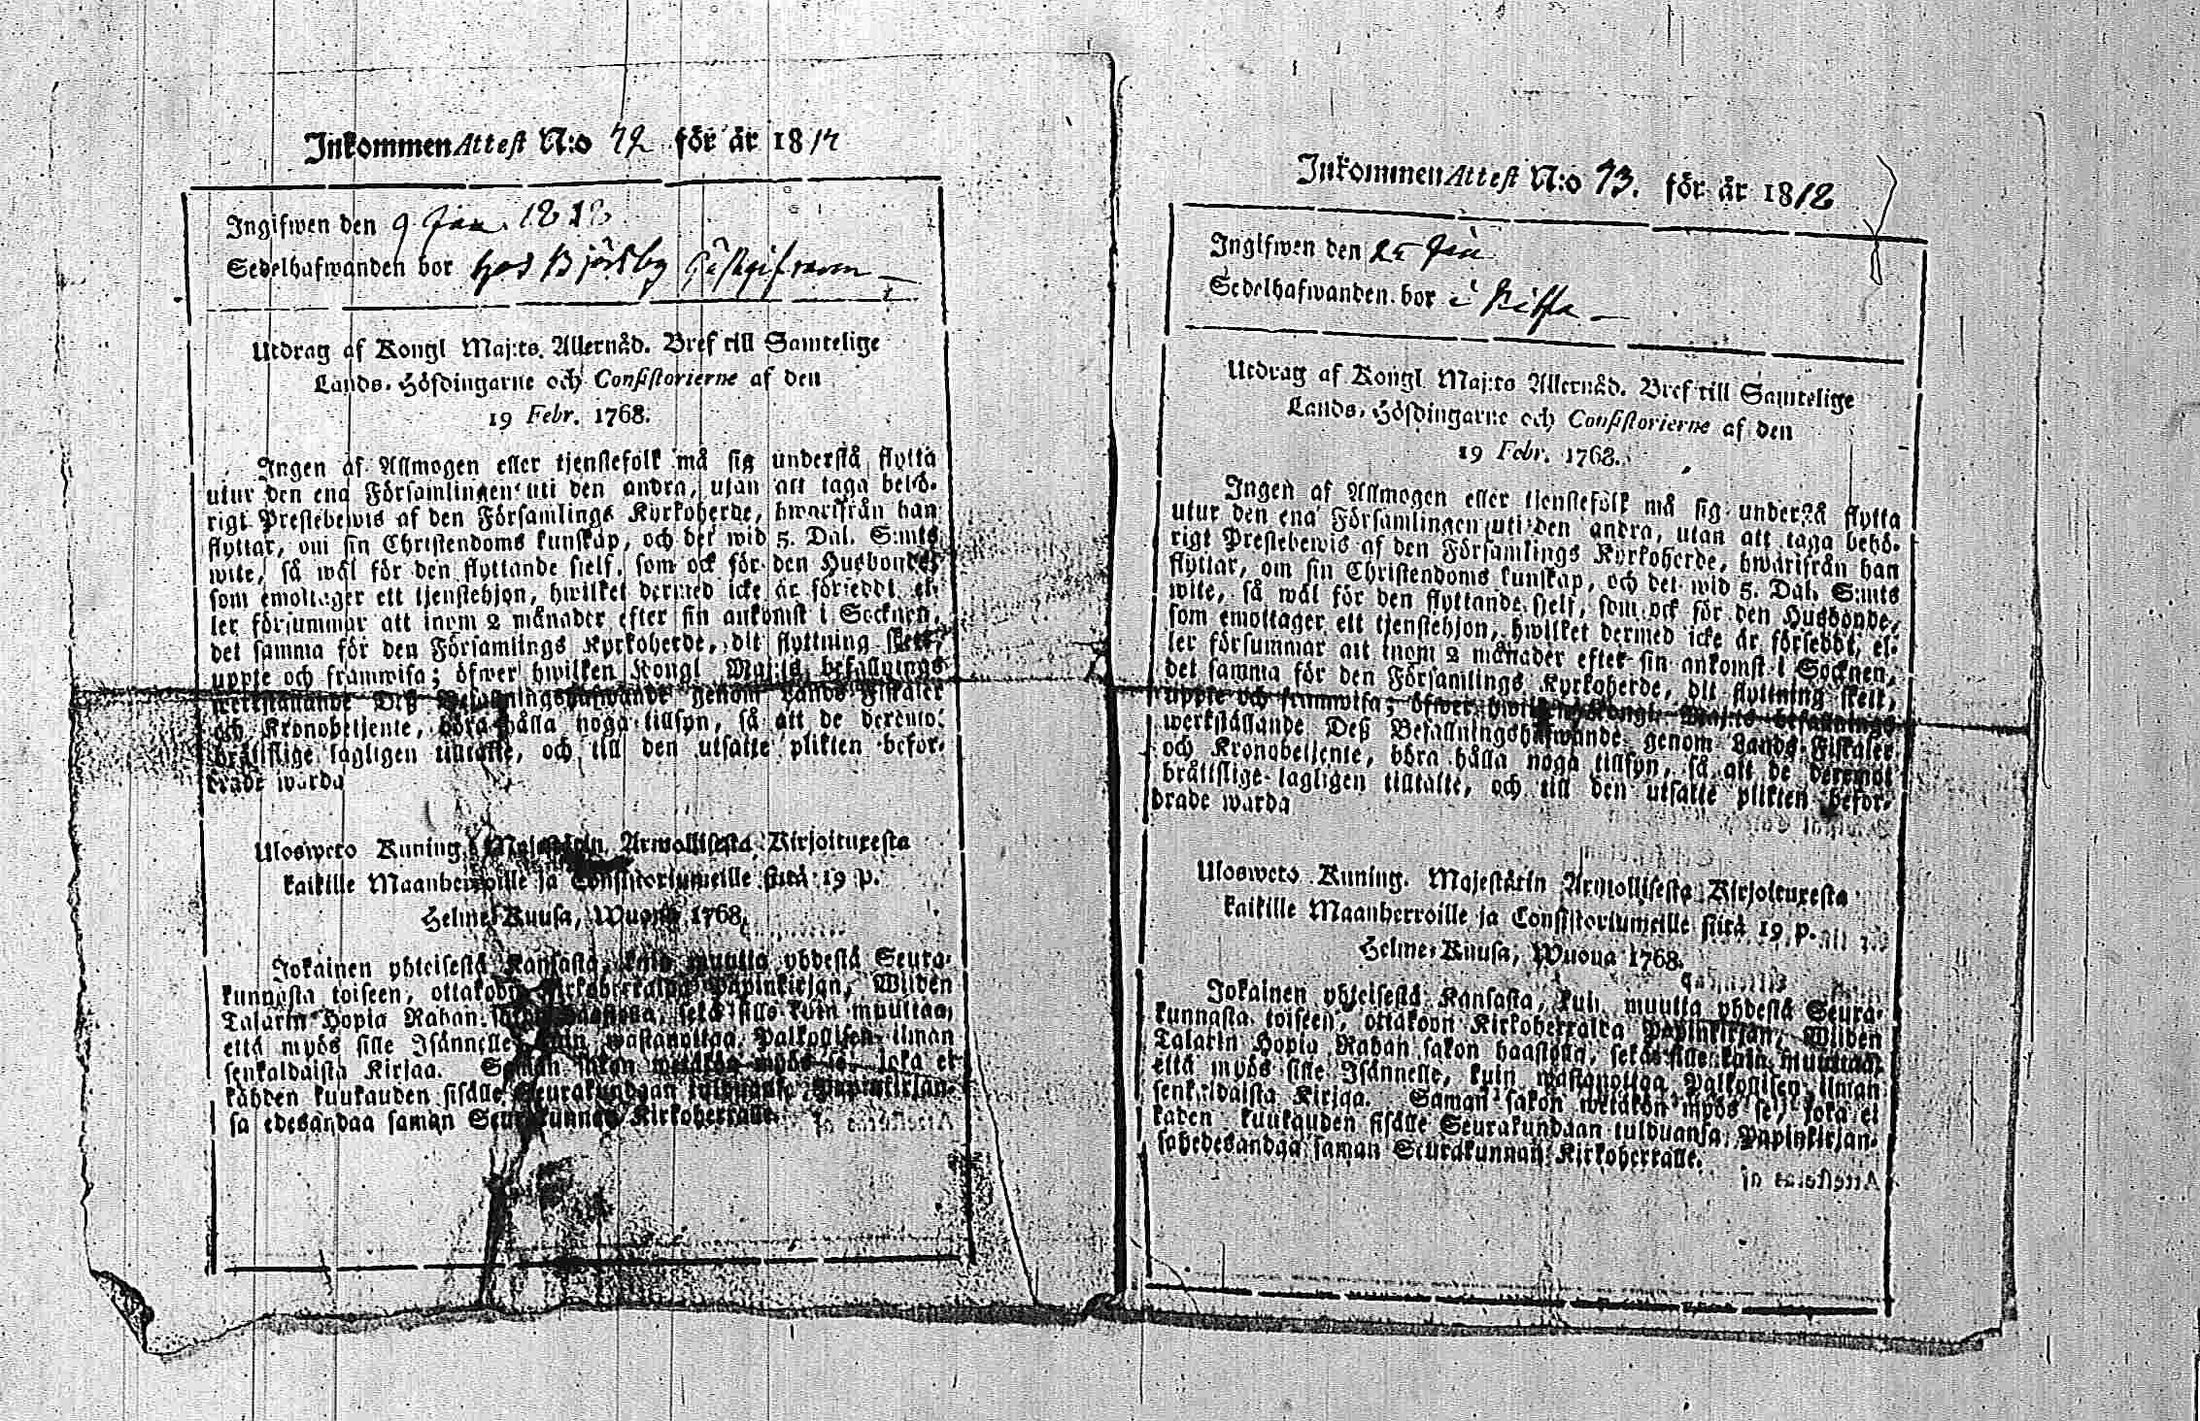 Inkommen Attest N:o 72 för år 1812
Ingifwen den 9 Jan. 1812
Sedelhafwanden bor hos Björkby
Utdrag af Kongl Maj:ts. Allernåd. Bref till Samtelige
Lands-Höfdingarne och Consistorierne af den
19 Febr. 1768.
Ingen af Allmogen eller tjenstefolk må sig understå flytta
utur den ena Församlingen uti den andra, utan att taga behö-
rigt Prestebewis af den Församlings Kyrkoherde, hwarifrån han
flyttar, om sin Christendoms kunskap, och det wid 5. Dal. S:mts
wite, så wäl för den flyttande sjelf, som ock för den Husbonde,
som emottager ett tjenstehjon, hwilket dermed icke är försedt, el-
ler försummar att inom 2 månader efter sin ankomst i Socknen,
det samma för den Församlings Kyrkoherde, dit flyttning skett,
uppte och framwisa; öfwer hwilken Kongl Maj:ts befallnings
werkställande Deß Befallningshafwande genom Lands-Fiskaler
och Kronobetjente, böra hålla noga tillsyn, så att de deremot
bråttslige lagligen tilltalte, och till den utsatte plikten befor-
drade warda
Uloswcto Kuning. Majestätin Armollisesta Kirjoituxesta
kaikille Maanherroille ja Consistoriumeille siitä 19 p.
Helme-Kuusa, Wuona 1768.
Jokainen yhteisestä Kansasta, kuin muutta yhdestä Seura-
kunnasta toiseen, ottakoon Kirkoherralda Papinkirjan, Wiiden
Talarin Hopia Rahan sakon haastolla, sekä sille kuin muuttaa,
että myös sille Isännelle, kuin wastanottaa Palkollisen ilman
senkaldaista Kirjaa. Saman sakon wetäkön myös se, joka ei
kahden kuukauden sisälle Seurakundaan tulduansa Papinkirjan-
sa edesandaa saman Seurakunnan Kirkoherralle.
Inkommen Attest N:o 73. för år 1812
Ingifwen den 25 Jan
Sedelhafwanden bor i
Utdrag af Kongl Maj:ts Allernåd. Bref till Samtelige
Lands-Höfdingarne och Consistorierne af den
19 Febr. 1768.
Ingen af Allmogen eller tjenstefolk må sig understå flytta
utur den ena Församlingen uti den andra, utan att taga behö-
rigt Prestebewis af den Församlings Kyrkoherde, hwarifrån han
flyttar, om sin Christendoms kunskap, och det wid 5. Dal. S:mts
wite, så wäl för den flyttande sjelf, som ock för den Husbonde,
som emottager ett tjenstehjon, hwilket dermed icke är försedt, el-
ler försummar att inom 2 månader efter sin ankomst i Socknen,
det samma för den Församlings Kyrkoherde, dit flyttning skett,
uppte och framwisa; öfwer hwilken Kongl. Maj:ts befallnings
werkställande Deß Befallningshafwande genom Lands-Fiskaler
och Kronobetjente, böra hålla noga tillsyn, så att de deremot
bråttslige lagligen tilltalte, och till den utsatte plikten befor-
drade warda
Uloswcto Kuning. Majestätin Armollisesta Kirjoituxesta
kaikille Maanherroille ja Consistoriumeille siitä 19 p.
Helme-Kuusa, Wuona 1768.
Jokainen yhteisestä Kansasta, kuin muutta yhdestä Seura-
kunnasta toiseen, ottakoon Kirkoherralda Papinkirjan, Wiiden
Talarin Hopia Rahan sakon haastolla, sekä sille kuin muuttaa,
että myös sille Isännelle, kuin wastanottaa Palkollisen ilman
senkaldaista Kirjaa. Saman sakon wetäkön myös se, joka ei
kahden kuukauden sisälle Seurakundaan tulduansa Papinkirjan-
sa edesandaa saman Seurakunnan Kirkoherralle.